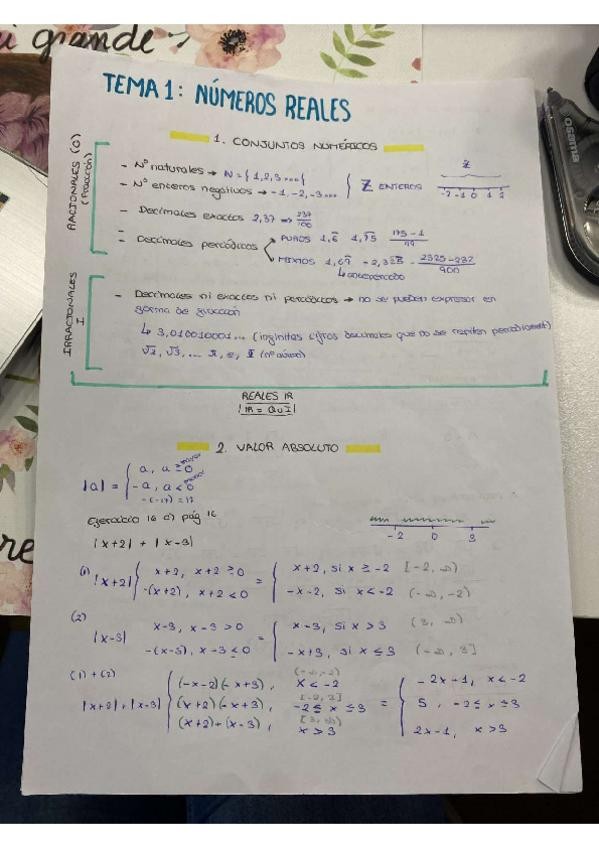 i grande
osama
TEMA 1: NÚMEROS REALES
1. CONJUNTOS NUMÉRICOS
RACIONALES (Q)
(Fracción)
- Nº naturales → N = {1,2,3....}
- Nº enteros negativos → -1, -2, -3... { Z ENTEROS
Z
-2 -1 0 1 2
- Decimales exactos 2,37 => 237/100
- Decimales periódicos
PUROS 1,6 1,75 175-1/99
MIXTOS 1,67 - 2,325 - 2325-232/900
↳ anteperiodo
IRRACIONALES
I
- Decimales ni exactos ni periódicos → no se pueden expresar en
forma de fracción
↳ 3,010010001... (infinitas cifras decimales que no se repiten)
√2, √3, ... π, e, Φ (nº aúreo)
REALES IR
IR = Q ∪ I
2. VALOR ABSOLUTO
|a| = { a, a ≥ 0 mayor
-a, a < 0 menor
-(-17) = 17
Ejercicio 16 a) pág 16
|x+2| + |x-3|
-2 0 3
(1) |x+2| { x+2, x+2 ≥ 0 = { x+2, si x ≥ -2 [-2, ∞)
-(x+2), x+2 < 0 -x-2, si x < -2 (-∞, -2)
(2)
|x-3| x-3, x-3 > 0 = { x-3, si x > 3 (3, ∞)
-(x-3), x-3 ≤ 0 -x+3, si x ≤ 3 (-∞, 3]
(1) + (2)
|x+2| + |x-3| { (-x-2)(-x+3), (-∞,-2) x < -2 = { -2x+1, x < -2
(x+2)(-x+3), [-2, 3] -2 ≤ x ≤ 3 5, -2 ≤ x ≤ 3
(x+2)+(x-3), [3, ∞) x > 3 2x-1, x > 3
re